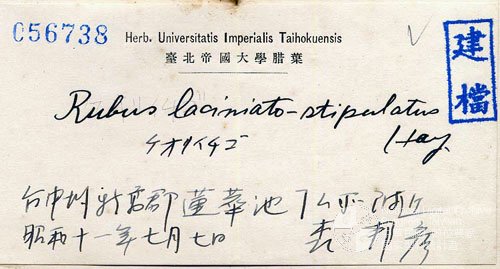 056738
Herb. Universitatis Imperialis Taihokuensis
臺北帝國大學腊葉
建檔
Rubus laciniato-stipulatus
Hay.
台中州新高郡蓮華池
附近
昭和十一年七月七日